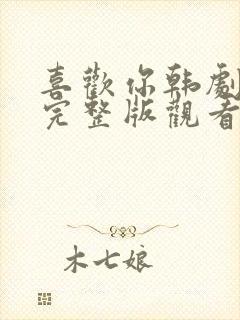 喜歡你韩劇
完整版觀看
木七娘